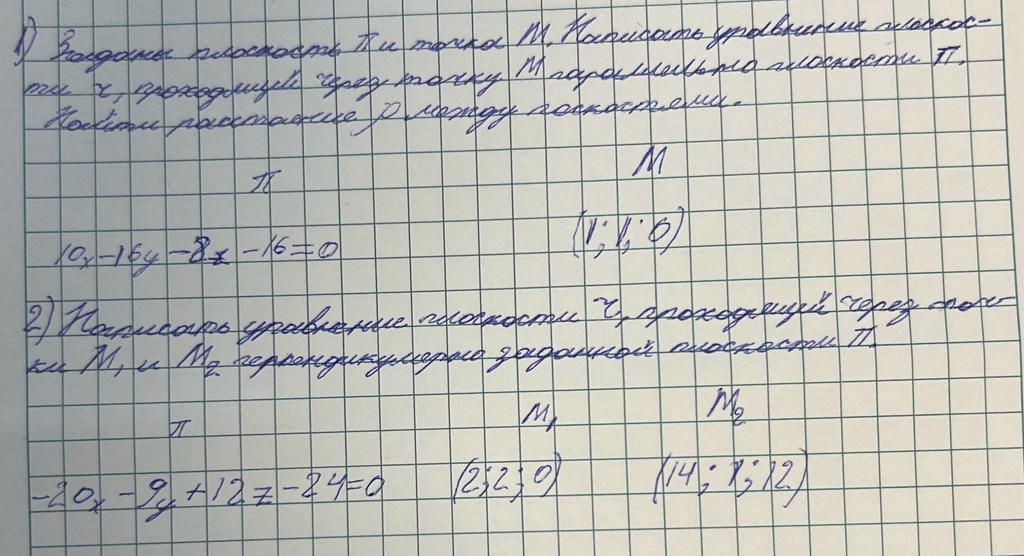 1) Заданы плоскость П и точка М. Написать уравнение плоскос-
ти ч, проходящей через точку М параллельно плоскости П.
Найти расстояние ρ между поскостями.
П М
10x-16y-8z-16=0 (1;1;6)
2) Написать уравнение плоскости ч, проходящей через точ-
ки М1 и М2 перпендикулярно заданной плоскости П.
П М1 М2
-20x-9y+12z-24=0 (2;2;0) (14;1;12)